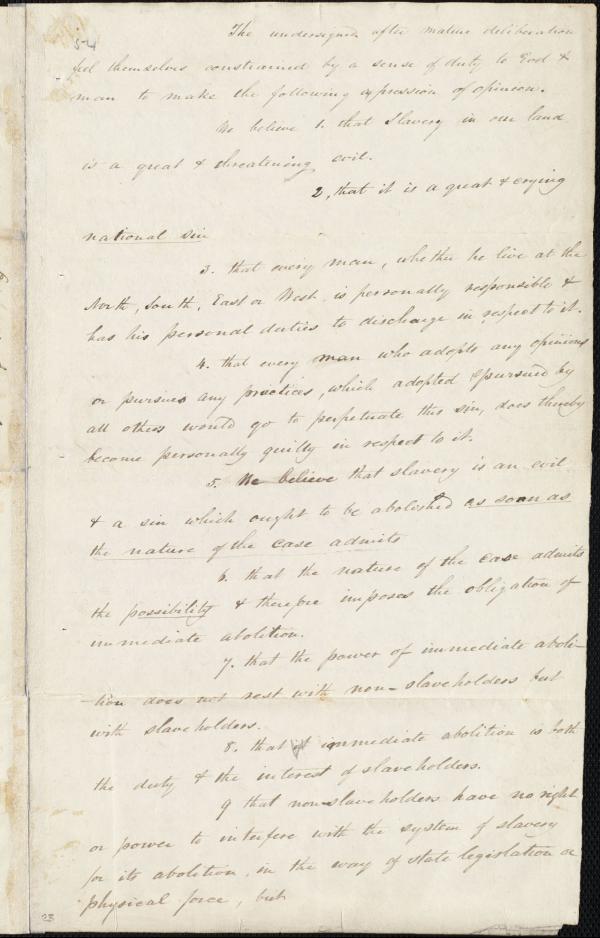 54
The undersigned after mature deliberation
feel themselves constrained by a sense of duty to God &
man to make the following expression of opinion.
We believe 1. that Slavery in our land
is a great & threatening evil.
2, that it is a great & crying
national sin
3. that every man, whether he live at the
North, South, East or West, is personally responsible &
has his personal duties to discharge in respect to it.
4. that every man who adopts any opinions
or pursues any practices, which adopted & pursued by
all others would go to perpetuate this sin, does thereby
become personally guilty in respect to it.
5. We believe that slavery is an evil
& a sin which ought to be abolished as soon as
the nature of the case admits
6. that the nature of the case admits
the possibility & therefore imposes the obligation of
immediate abolition.
7. that the power of immediate aboli-
-tion does not rest with non-slaveholders but
with slaveholders.
8. that immediate abolition is both
the duty & the interest of slaveholders.
9 that non-slaveholders have no right
or power to interfere with the system of slavery
for its abolition, in the way of state legislation or
physical force, but
23